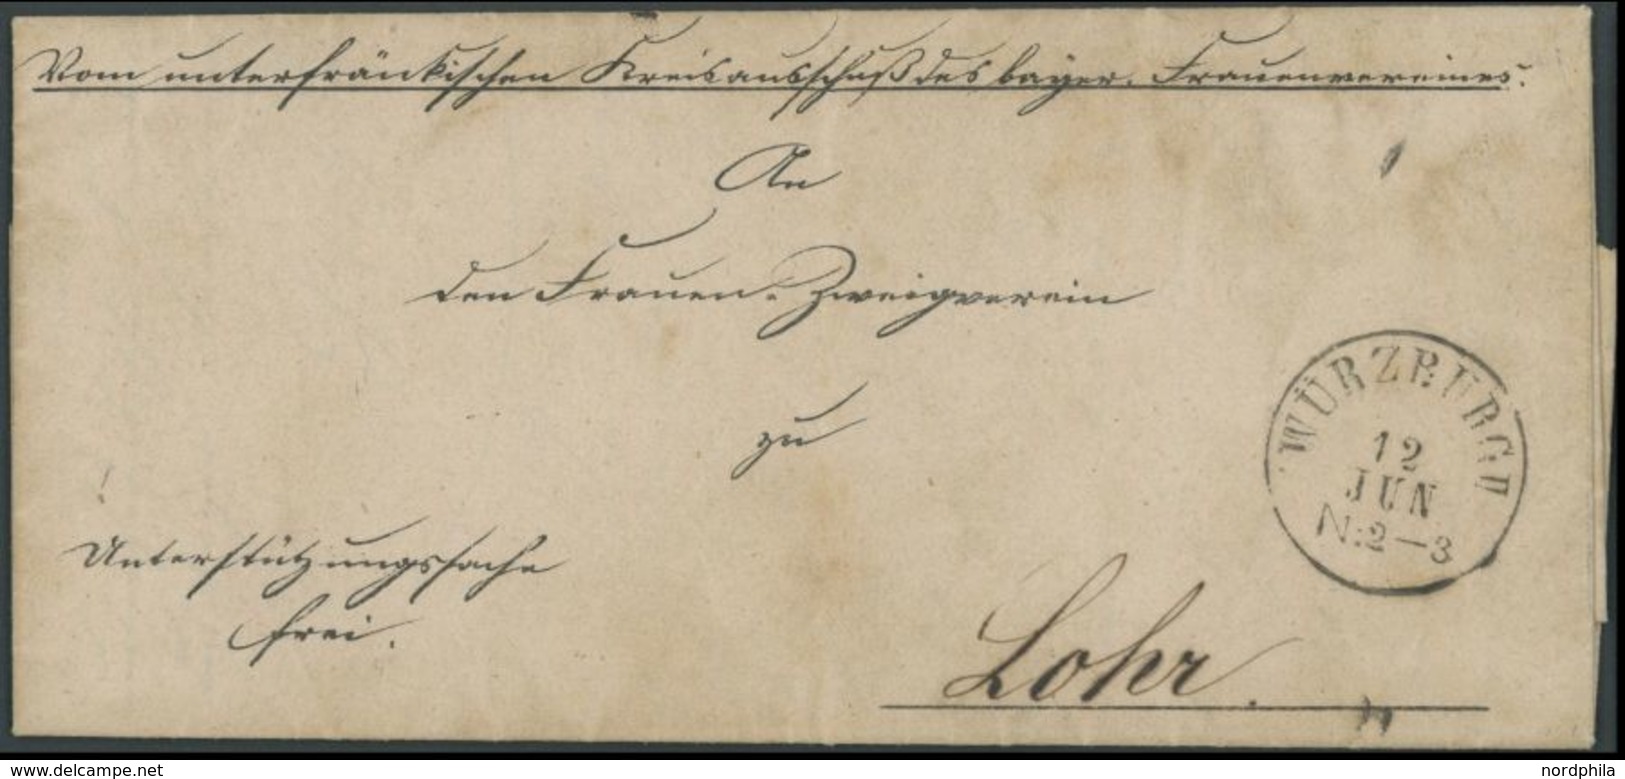 Vom unterfränkischen Kreisausschuß des bayer. Frauenvereines.
An
den Frauen-Zweigverein
zu
WÜRZBURG II
12
JUN
N:2-3
Unterstützungssache
frei.
Lohr.
www.delcampe.net
nordphila